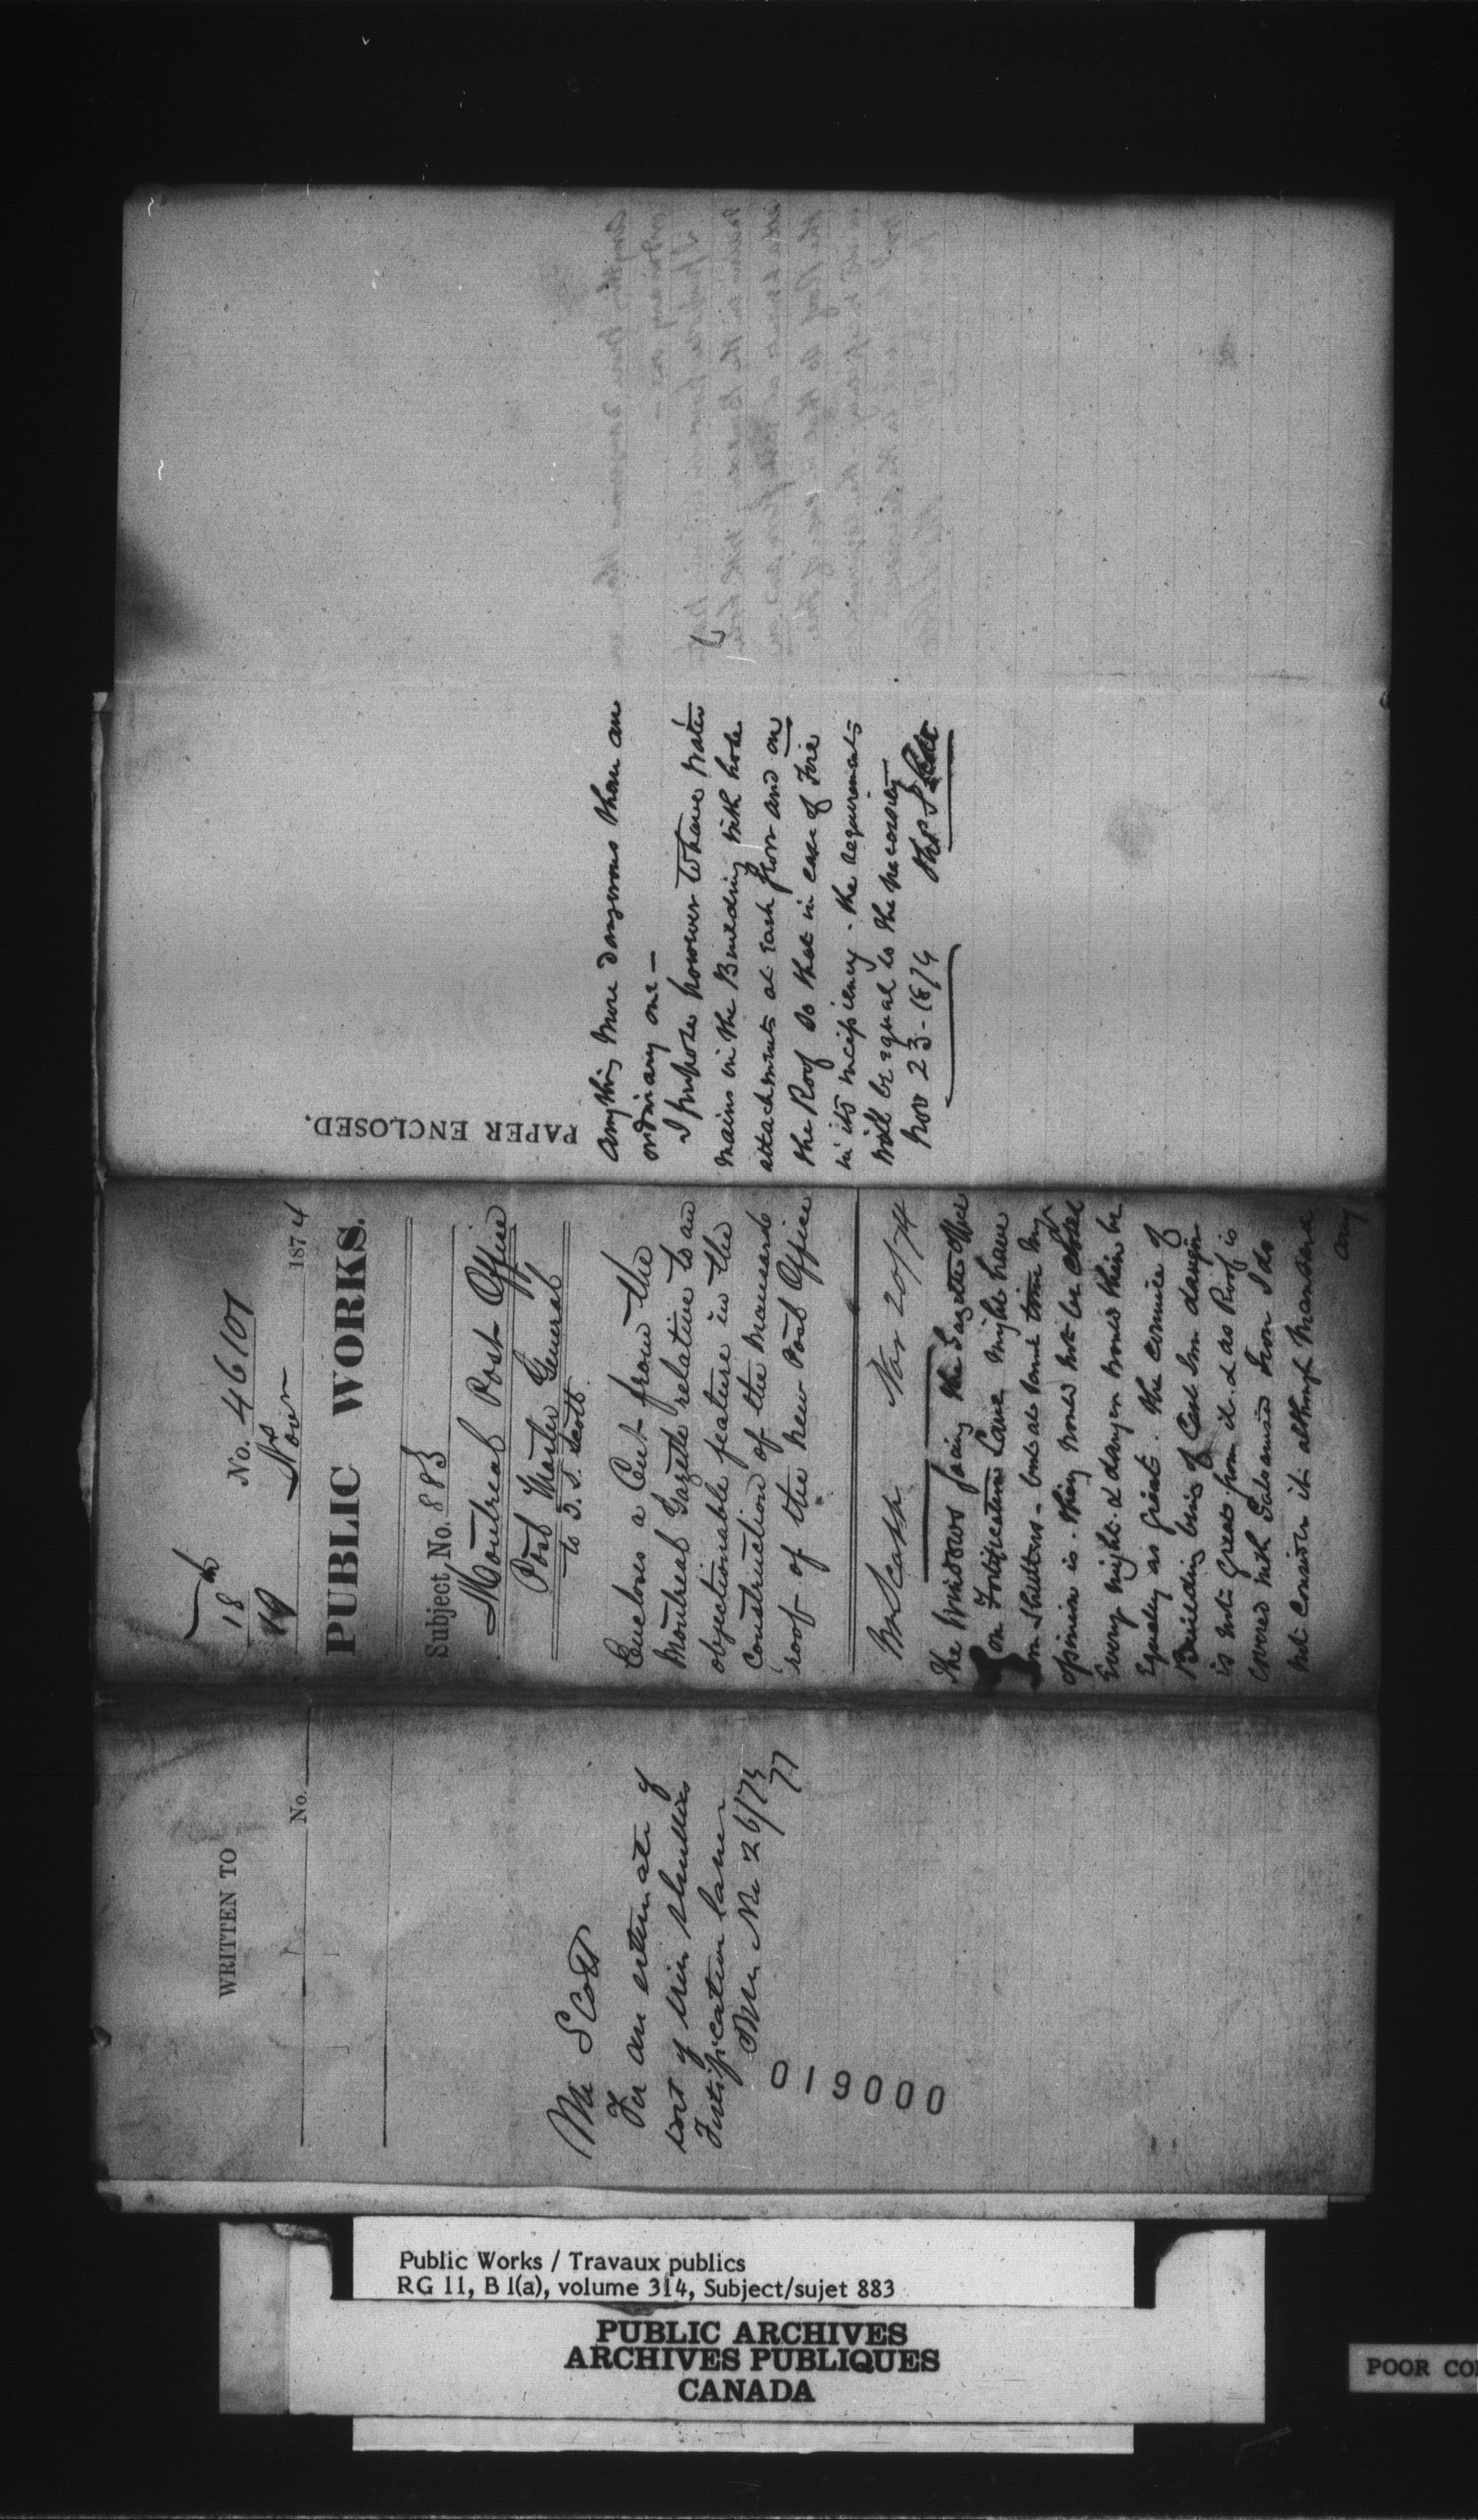 18th
No. 46101
19
Nov 1874
PUBLIC WORKS.
Subject, No. 883
Montreal Post Office
Post Master General
to T. S. Scott
Encloses a Cut from the
Montreal Gazette relative to an
objectionable feature in the
Construction of the Mansard
roof of the new Post Office
Mr Scott Nov 20/74
The Windows facing the Gazette Office
on Fortification Lane might have
Iron Shutters - but at same time my
opinion is they would not be closed
Every night & danger would then be
Equally as great. The cornice of
Building being of Cast Iron danger
is not great from it & as Roof is
covered with Galvanized Iron I do
not consider it although Mansard
any
anything more dangerous than an
ordinary one —
I propose however to have water
mains in the Building with hose
attachments at each floor and on
the Roof so that in case of Fire
in its incipiency - the requirements
will be equal to the necessity
Nov 23 - 1874 Thos S Scott
PAPER ENCLOSED.
WRITTEN TO
No.
Mr Scott
For an estimate of
cost of iron shutters
Fortification lane
Nov 26/74
019000
Public Works / Travaux publics
RG 11, B 1(a), volume 314, Subject/sujet 883
PUBLIC ARCHIVES
ARCHIVES PUBLIQUES
CANADA
POOR CO